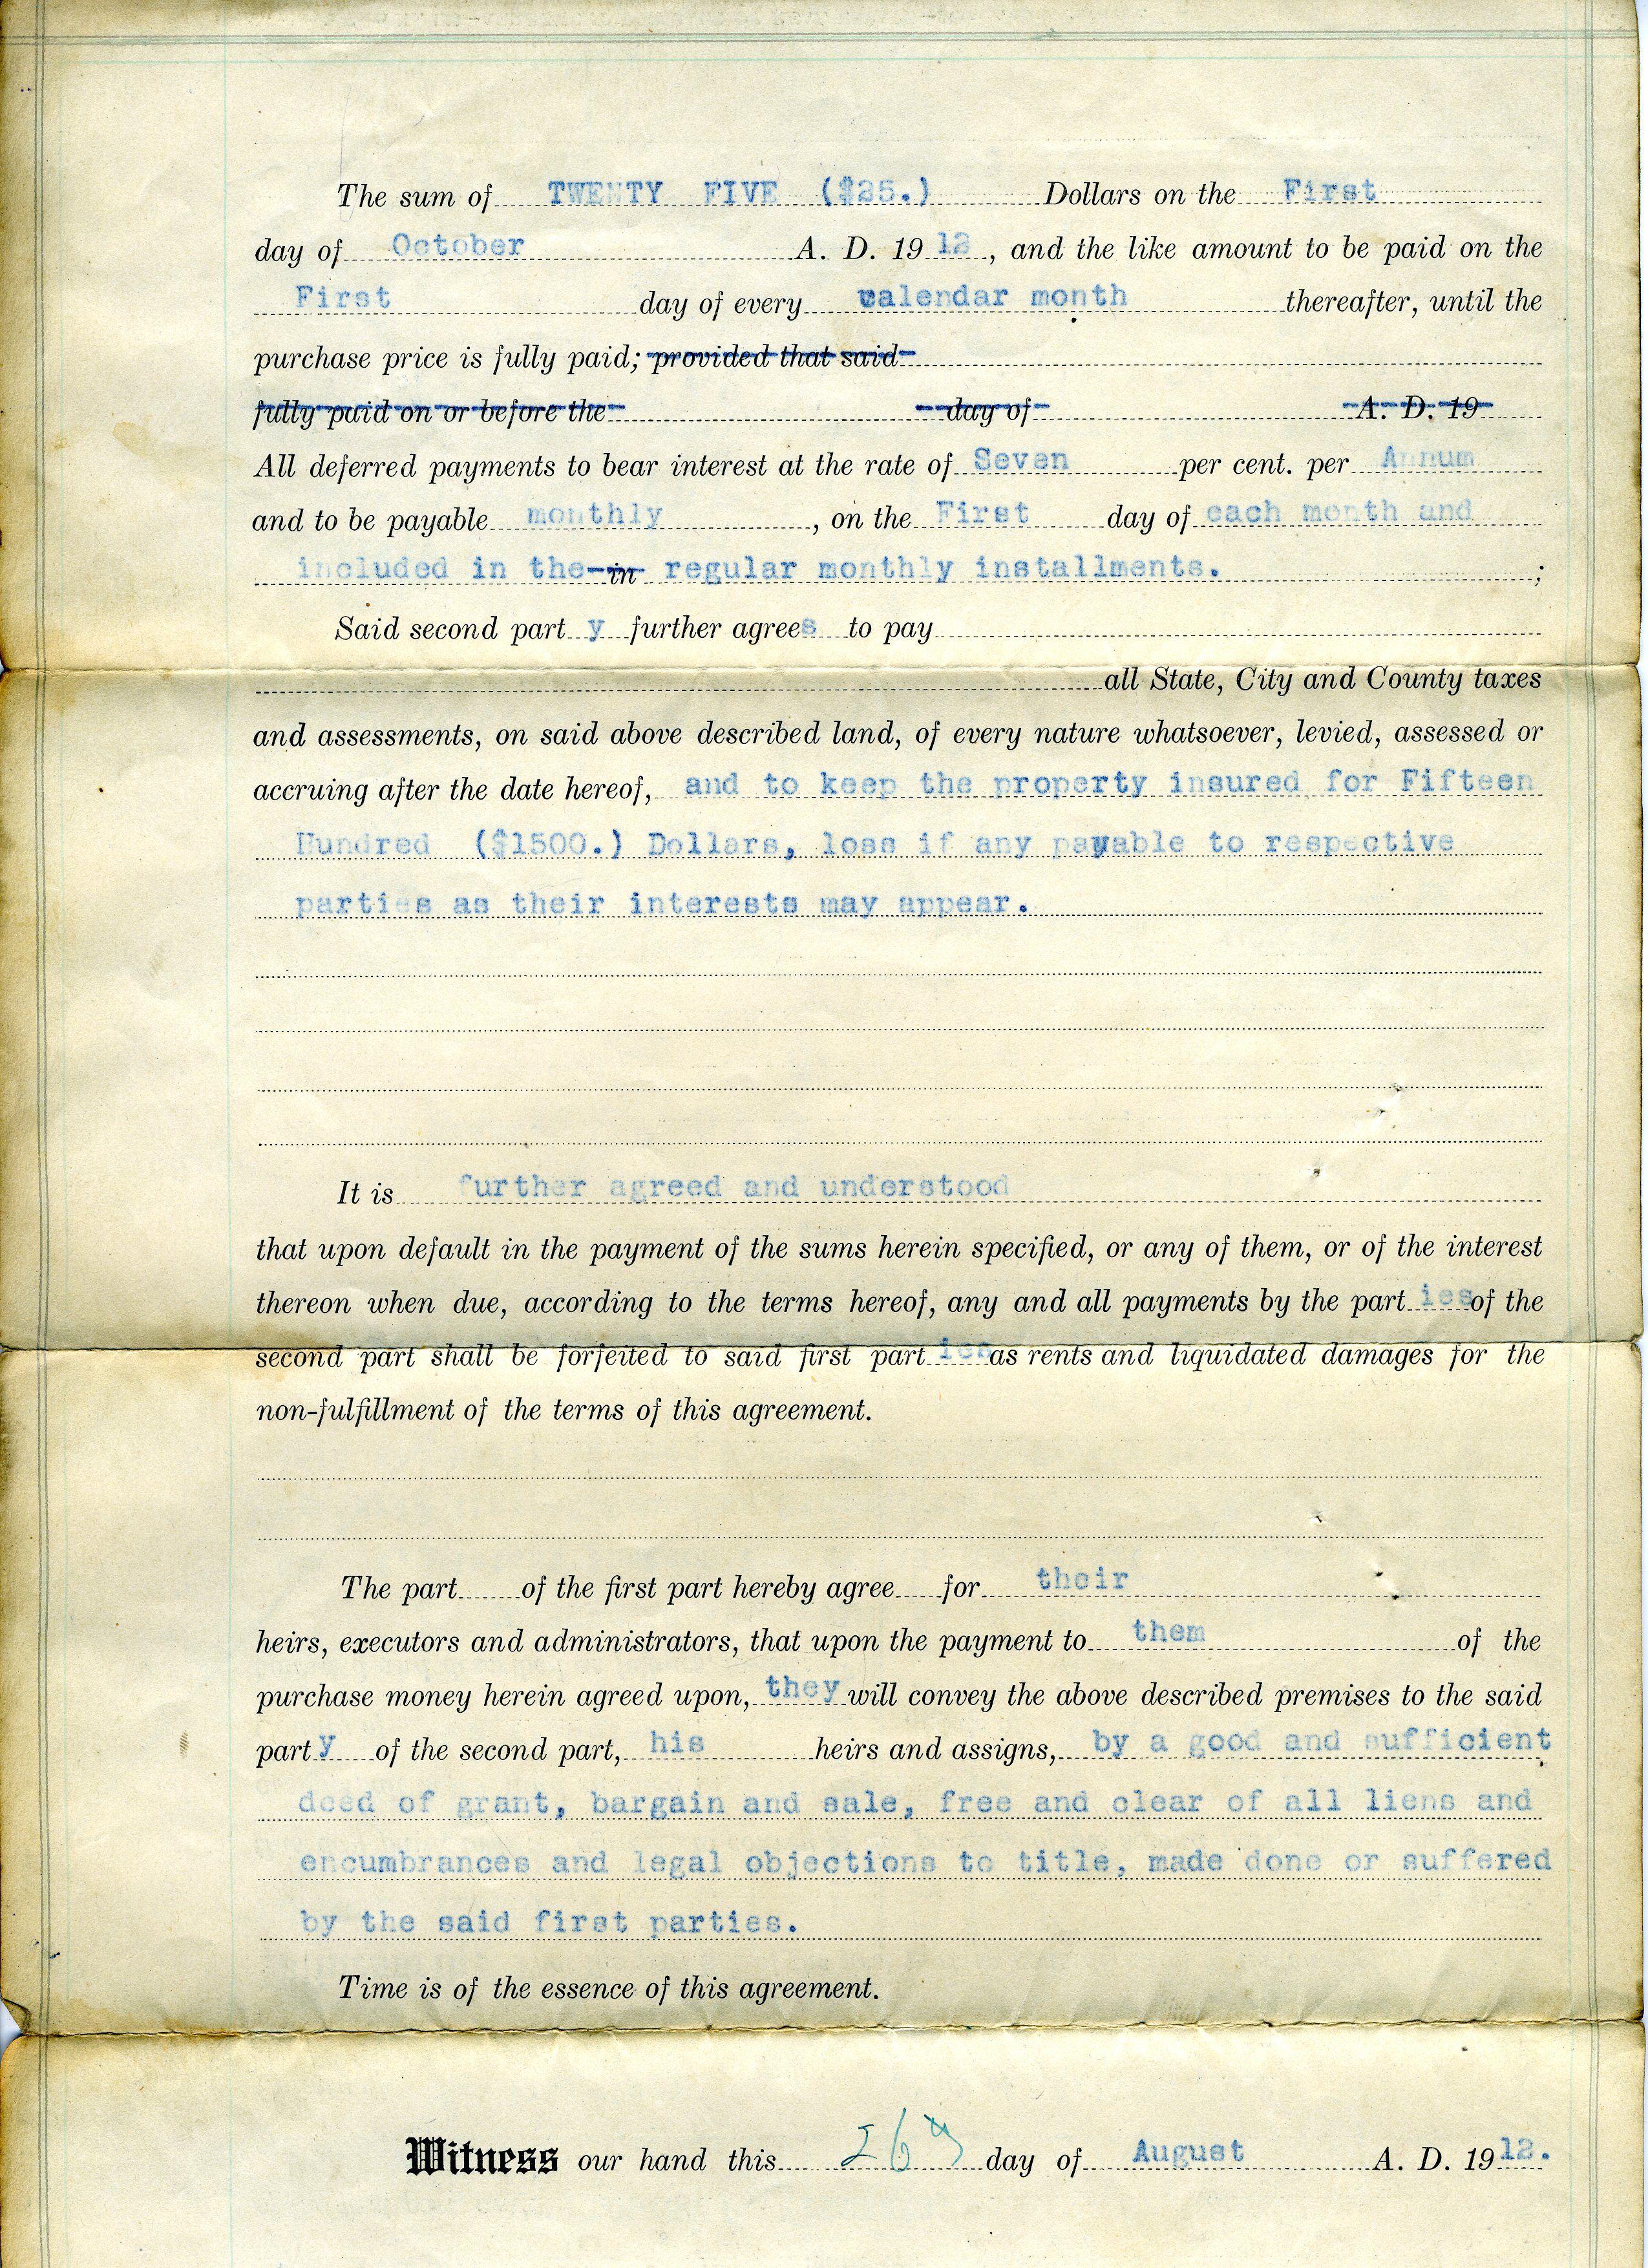 The sum of TWENTY FIVE ($25.) Dollars on the First
day of October A. D. 19 12, and the like amount to be paid on the
First day of every calendar month thereafter, until the
purchase price is fully paid; provided that said
fully paid on or before the day of A. D. 19
All deferred payments to bear interest at the rate of Seven per cent. per Annum
and to be payable monthly, on the First day of each month and
included in the in regular monthly installments. ;
Said second part y further agrees to pay
all State, City and County taxes
and assessments, on said above described land, of every nature whatsoever, levied, assessed or
accruing after the date hereof, and to keep the property insured for Fifteen
Hundred ($1500.) Dollars, loss if any payable to respective
parties as their interests may appear.
It is further agreed and understood
that upon default in the payment of the sums herein specified, or any of them, or of the interest
thereon when due, according to the terms hereof, any and all payments by the part ies of the
second part shall be forfeited to said first part ies as rents and liquidated damages for the
non-fulfillment of the terms of this agreement.
The part of the first part hereby agree for their
heirs, executors and administrators, that upon the payment to them of the
purchase money herein agreed upon, they will convey the above described premises to the said
part y of the second part, his heirs and assigns, by a good and sufficient
deed of grant, bargain and sale, free and clear of all liens and
encumbrances and legal objections to title, made done or suffered
by the said first parties.
Time is of the essence of this agreement.
Witness our hand this 26 day of August A. D. 19 12.